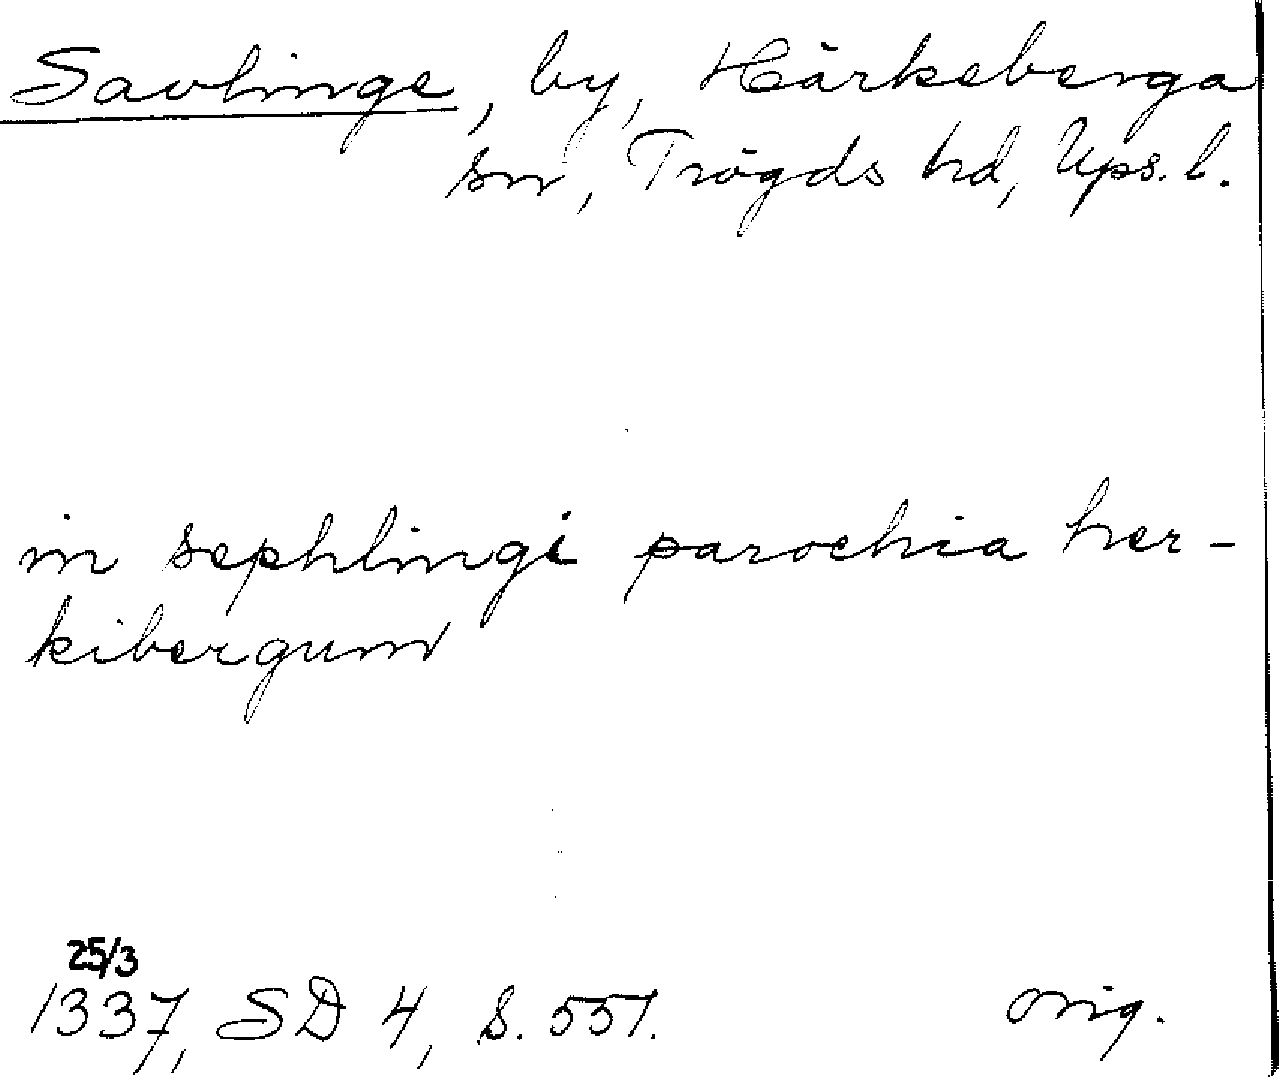 Savlinge, by, Härkeberga
sn, Trögds hd, Ups. l.
in sephlingi parochia her-
kibergum
25/3
1337, SD 4, s. 551. orig.